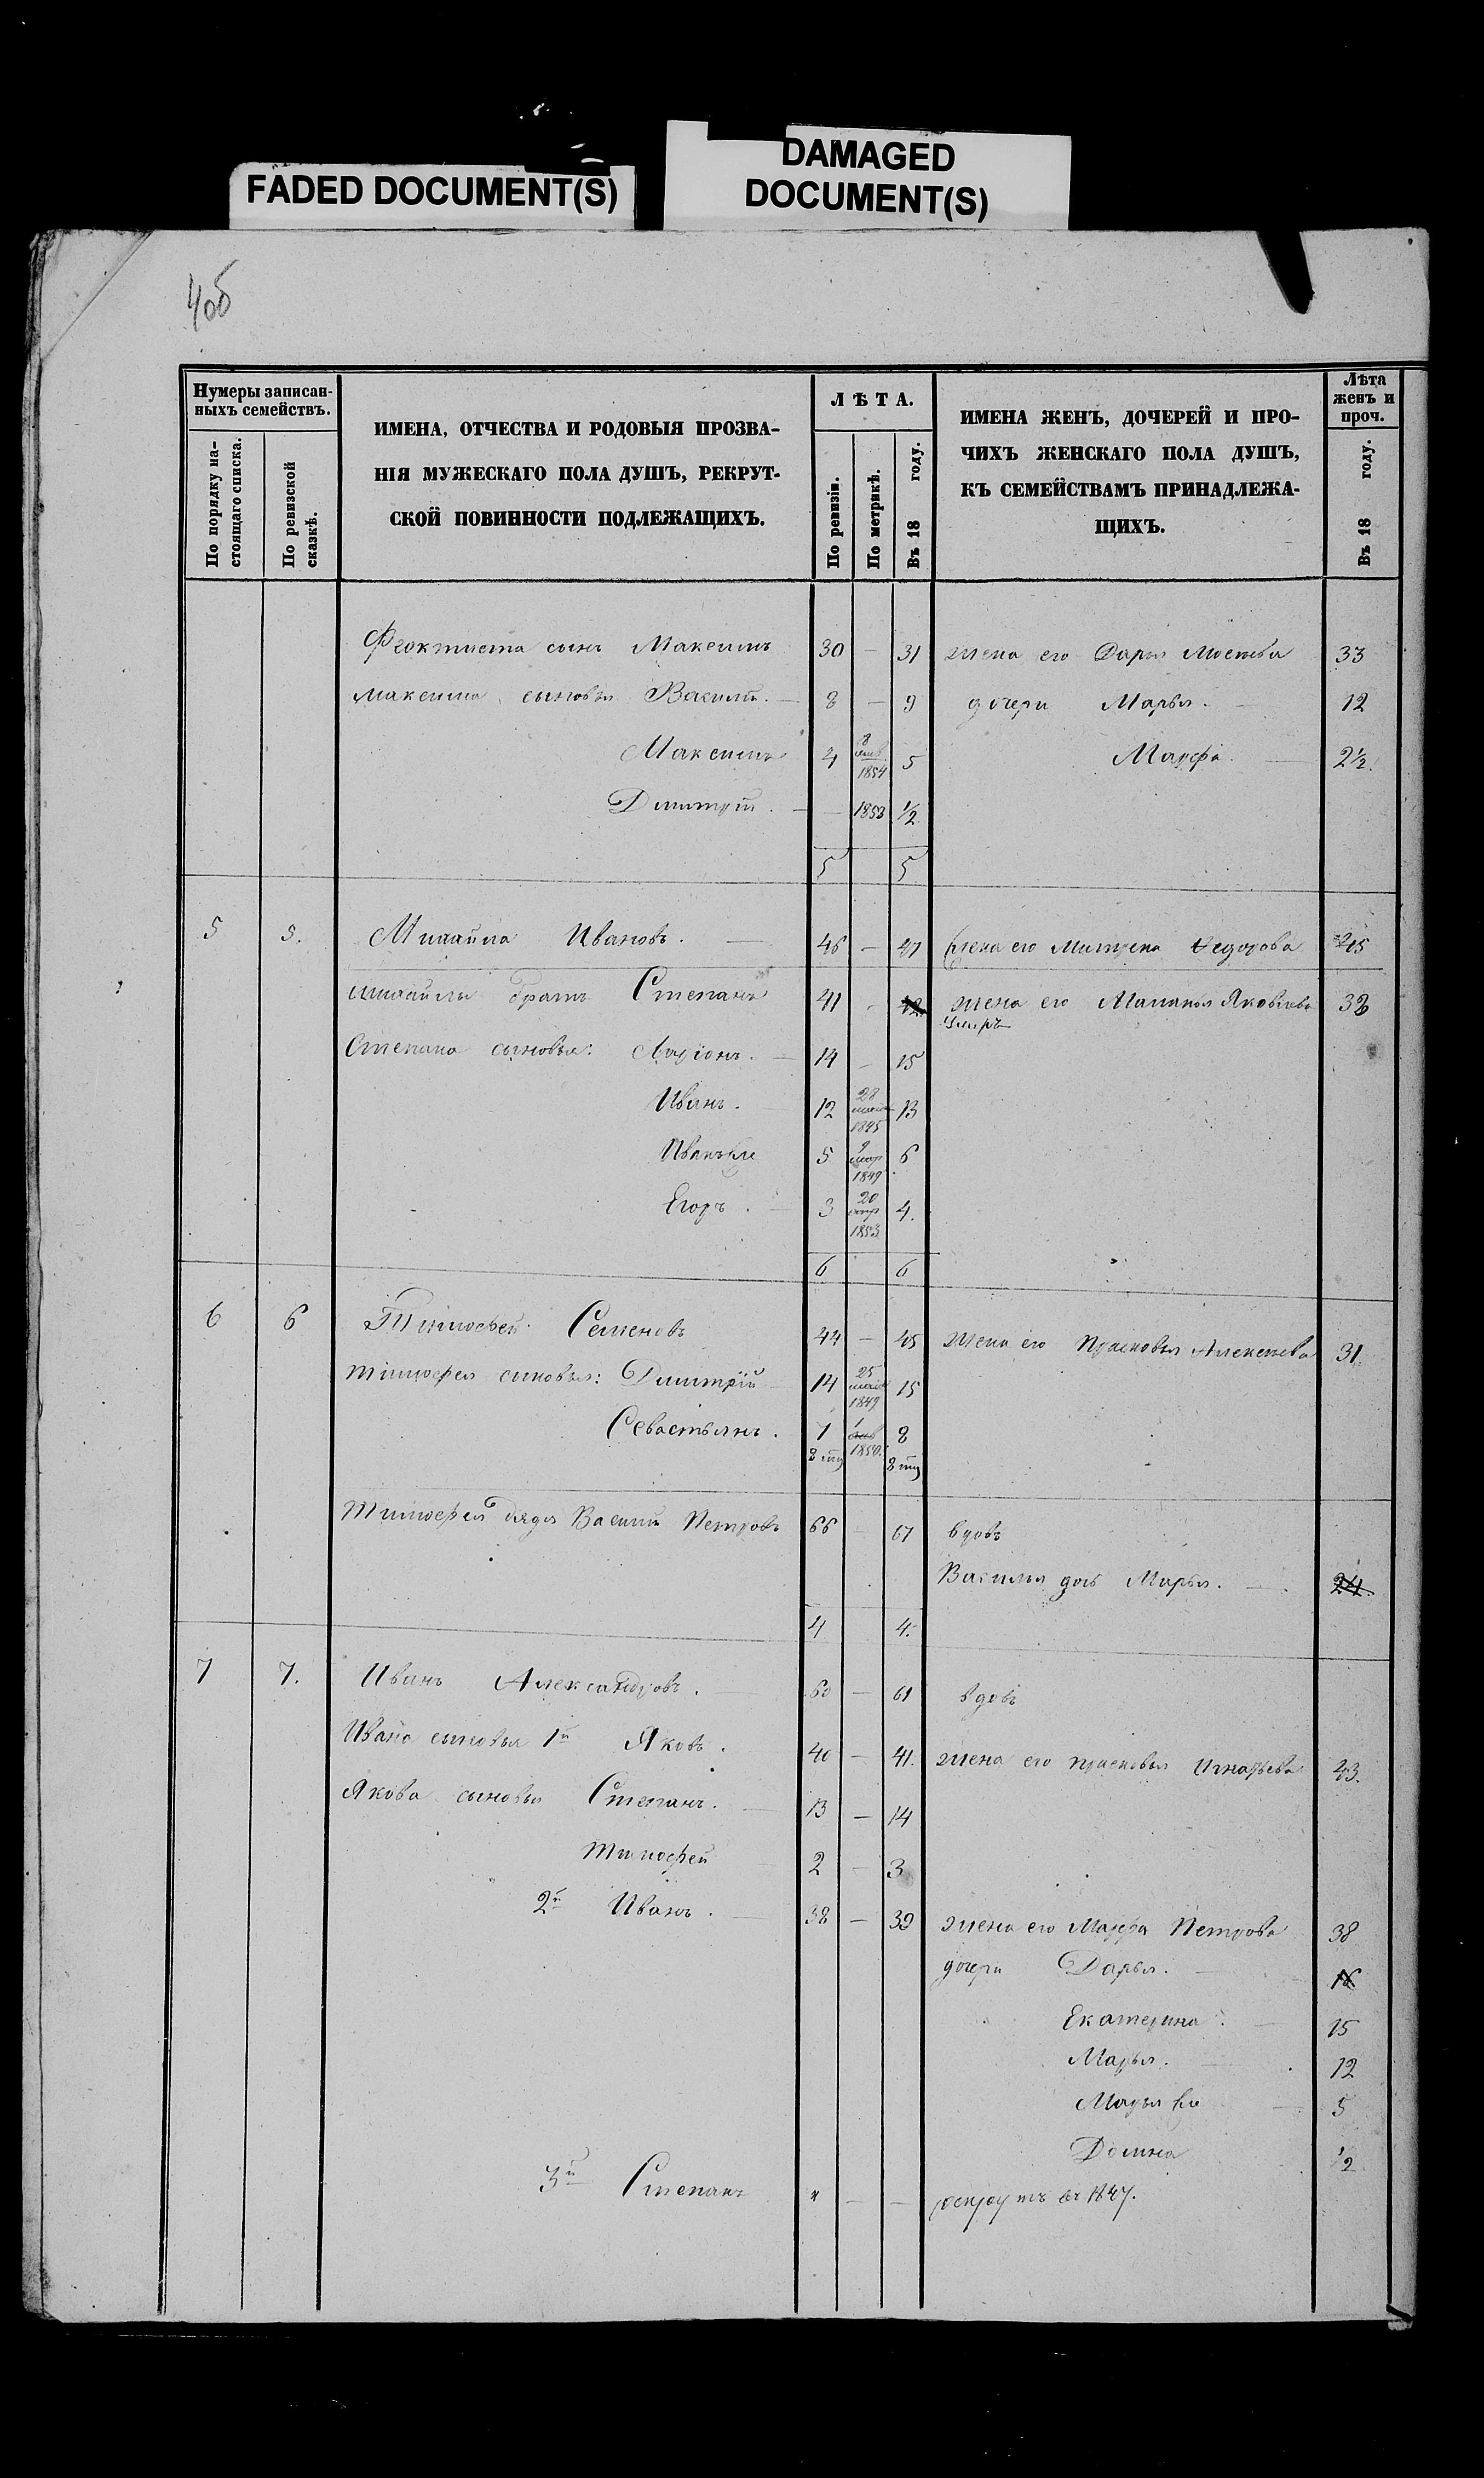 FADED DOCUMENT(S)
DAMAGED
DOCUMENT(S)
4об
Нумеры записан-
ныхъ семействъ.
По порядку на-
стоящаго списка.
По ревизской
сказкѣ.
ИМЕНА, ОТЧЕСТВА И РОДОВЫЯ ПРОЗВА-
НІЯ МУЖЕСКАГО ПОЛА ДУШЪ, РЕКРУТ-
СКОЙ ПОВИННОСТИ ПОДЛЕЖАЩИХЪ.
ЛѢТА.
По ревизіи.
По метрикѣ.
Въ 18 году.
ИМЕНА ЖЕНЪ, ДОЧЕРЕЙ И ПРО-
ЧИХЪ ЖЕНСКАГО ПОЛА ДУШЪ,
КЪ СЕМЕЙСТВАМЪ ПРИНАДЛЕЖА-
ЩИХЪ.
Лѣта
женъ и
проч.
Въ 18 году.
Феоктиста сынъ Максимъ 30 — 31 жена его Дарья 33
Максима сыновья Василій. — 8 — 9 дочери Марья. 12
Максимъ 4 8 янв 1854 5 Марфа. 2½.
Димитрій. — — 1858 ½
5 5
5 5. Михайла Ивановъ. — 46 — 47 жена его Матрена Федорова 45
Михайлы братъ Степанъ 41 - 42 жена его Маланья Яковлева 32
умеръ
Степана сыновья: Ларіонъ. — 14 — 15
Иванъ. 12 28 1845 13
Иванъ же 5 9 мар 1849 6
Егоръ. 3 20 апр 1853 4.
6 6
6 6 Тимофей Семеновъ 44 — 45 жена его Прасковья Алексеева 31.
Тимофея сыновья: Димитрій 14 25 1849 15
Севастьянъ. 7 1 янв 1850. 8
Тимофея дядя Василій Петровъ 66 67 вдовъ
Василья дочь Марья. — 24.
4 4.
7 7. Иванъ Александровъ. — 60 — 61 вдовъ
Ивана сыновья 1й Яковъ. 40 — 41. жена его Прасковья Игнатьева 43.
Якова сыновья Степанъ. — 13 — 14
Тимофей 2 — 3
2й Иванъ. — 38 — 39 жена его Марфа Петрова 38
дочери Дарья. — 16
Екатерина. — 15
Марья. — 12
Марья же 5
Домна ½
3й Степанъ — — рекрутъ въ 1847.